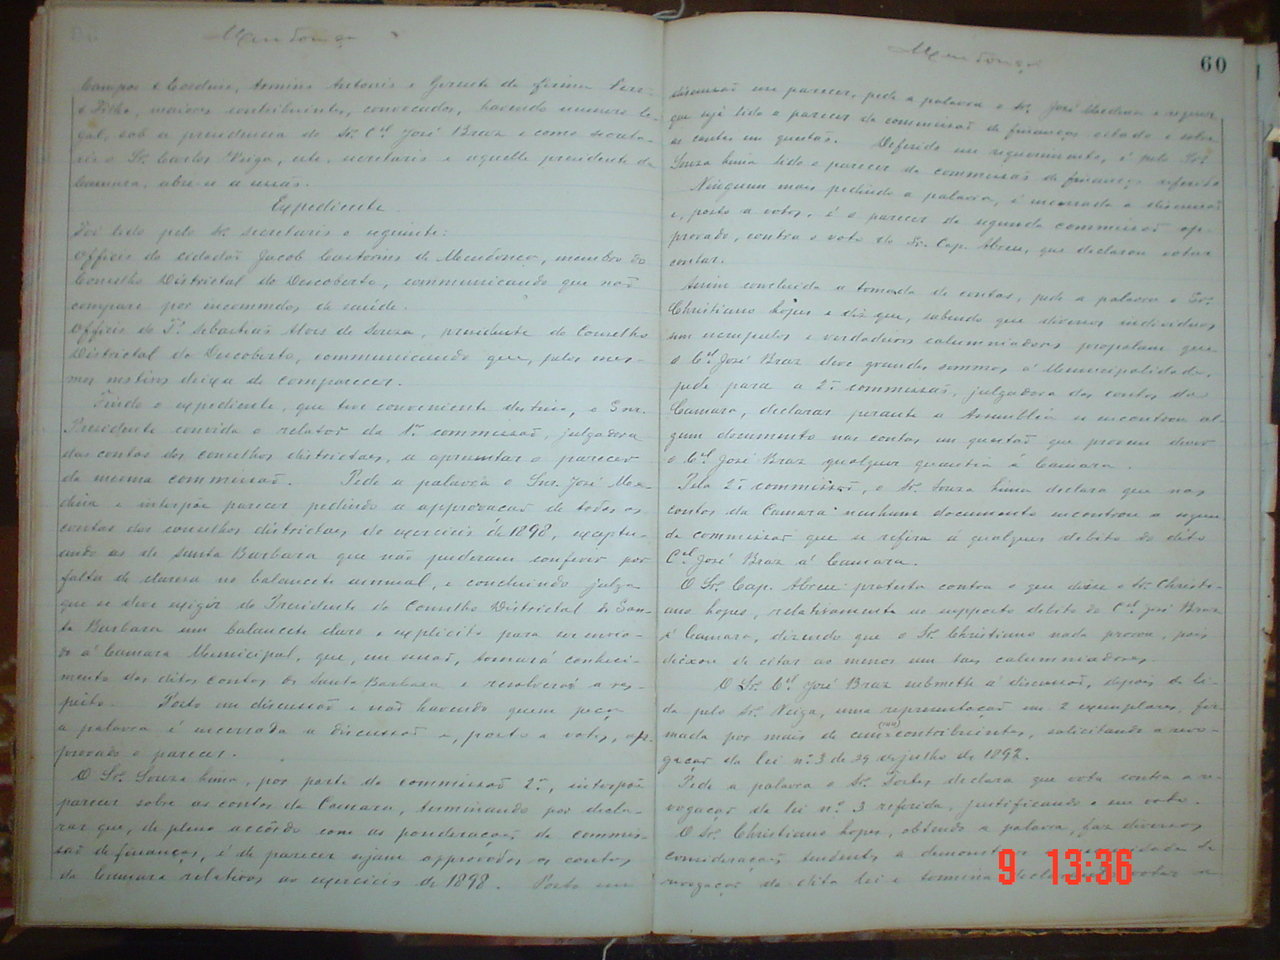 Mendonça
Campos e Cardoso, Arminio Antonio e Gerente da firma
e Filho, maiores contribuintes, convocados, havendo numero le-
gal, sob a presidencia do Sr. Cel José Braz e como secreta-
rio o Sr. Carlos Veiga, este, secretario e aquelle presidente da
Camara, abre-se a sessão.
Expediente
Foi lido pelo Sr. secretario o seguinte:
Officio do cidadão Jacob de Mendonça, membro do
Conselho Districtal do Descoberto, communicando que não
compare por incommodos de saúde.
Officio do Te Sebastião Alves de Souza, presidente do Conselho
Districtal do Descoberto, communicando que, pelos mes-
mos motivos deixa de comparecer.
Findo o expediente, que teve conveniente destino, o Snr.
Presidente convida o relator da 1ª commissão, julgadora
das contas dos conselhos districtaes, a apresentar o parecer
da mesma commissão. Pede a palavra o Snr. José Me-
deiros e interpõe parecer pedindo a approvação de todas as
contas dos conselhos districtaes do exercicio de 1898, exceptu-
ando as de Santa Barbara que não puderam conferir por
falta de clareza no balancete annual, e concluindo julga
que se deve exigir do Presidente do Conselho Districtal de San-
ta Barbara um balancete claro e explicito para ser envia-
do á Camara Municipal, que, em sessão, tomará conheci-
mento das ditas contas de Santa Barbara e resolverá a res-
peito. Posto em discussão e não havendo quem peça
a palavra é encerrada a discussão e, posto a votos, ap-
provado o parecer.
O Sr. Souza Lima, por parte da commissão 2ª, interpõe
parecer sobre as contas da Camara, terminando por decla-
rar que, de pleno accôrdo com as ponderações da commis-
são de finanças, é de parecer sejam approvadas as contas
da Camara relativas ao exercicio de 1898. Posto em
Mendonça
60
discussão esse parecer, pede a palavra o Sr. José Medeiros e requer
que seja lido o parecer da commissão de finanças citado e sobre
as contas em questão. Deferido esse requerimento, é pelo Sr.
Souza Lima lido o parecer da commissão de finanças referido
Ninguem mais pedindo a palavra, é encerrada a discussão
e, posto a votos, é o parecer da segunda commissão ap-
provado, contra o voto do Sr. Cap. Abreu, que declarou votar
contra.
Assim concluida a tomada de contas, pede a palavra o Sr.
Christiano Lopes e diz que, sabendo que diversos individuos
sem escrupulos e verdadeiros calumniadores propalam que
o Cel José Braz deve grandes sommas á Municipalidade,
pede para a 2ª commissão, julgadora das contas da
Camara, declarar perante a Assembléa se encontrou al-
gum documento nas contas em questão que provem dever
o Cel José Braz qualquer quantia á Camara.
Pela 2ª commissão, o Sr. Souza Lima declara que nas
contas da Camara nenhum documento encontrou a segun-
da commissão que se refira á qualquer debito do dito
Cel José Braz á Camara.
O Sr. Cap. Abreu protesta contra o que disse o Sr. Christi-
ano Lopes, relativamente ao supposto debito do Cel José Braz
á Camara, dizendo que o Sr. Christiano nada provou, pois,
deixou de citar ao menos um taes calumniadores.
O Sr. Cel José Braz submette á discussão, depois de li-
da pelo Sr. Veiga, uma representação em 2 exemplares, fir-
mada por mais de cem (100) contribuintes, solicitando a revo-
gação da lei nº 3 de 29 de julho de 1892.
Pede a palavra o Sr. Fortes declara que vota contra a re-
vogação da lei nº 3 referida, justificando o seu voto.
O Sr. Christiano Lopes, obtendo a palavra, faz diversas
considerações tendentes a demonstrar a necessidade da
revogação da dita lei e termina votar a
9 13:36